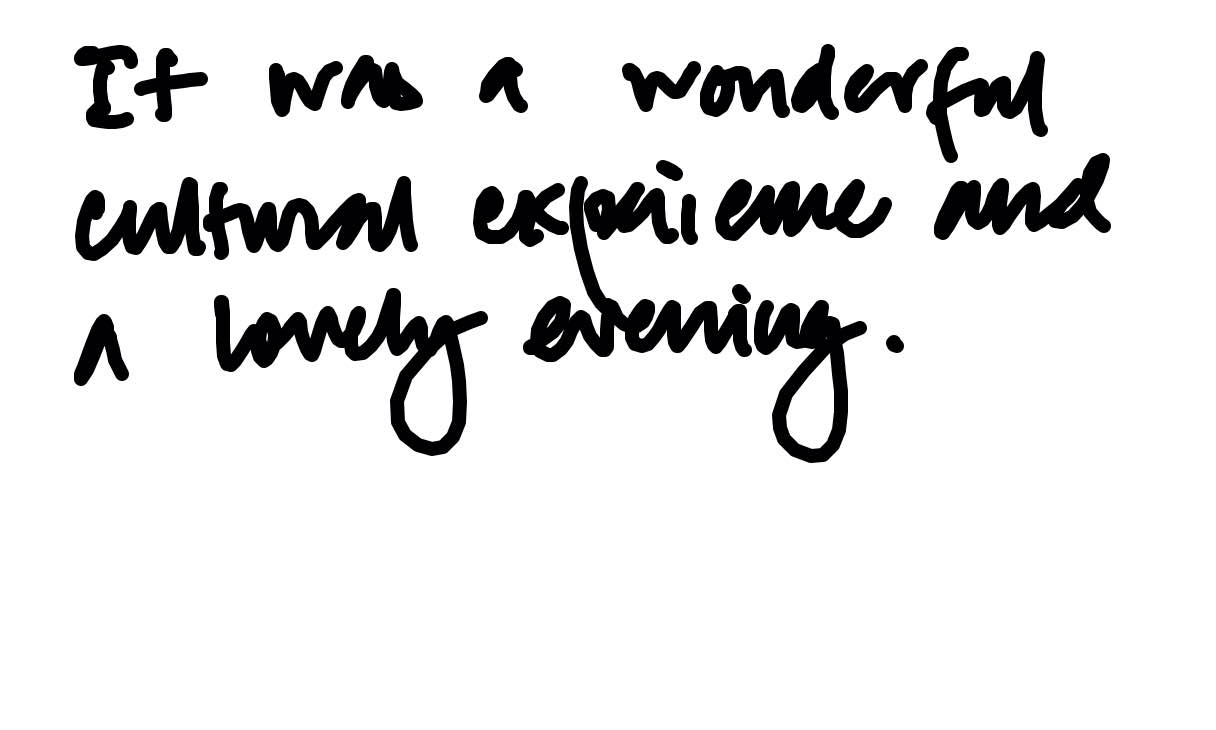 It was a wonderful
cultural experience and
a lovely evening.